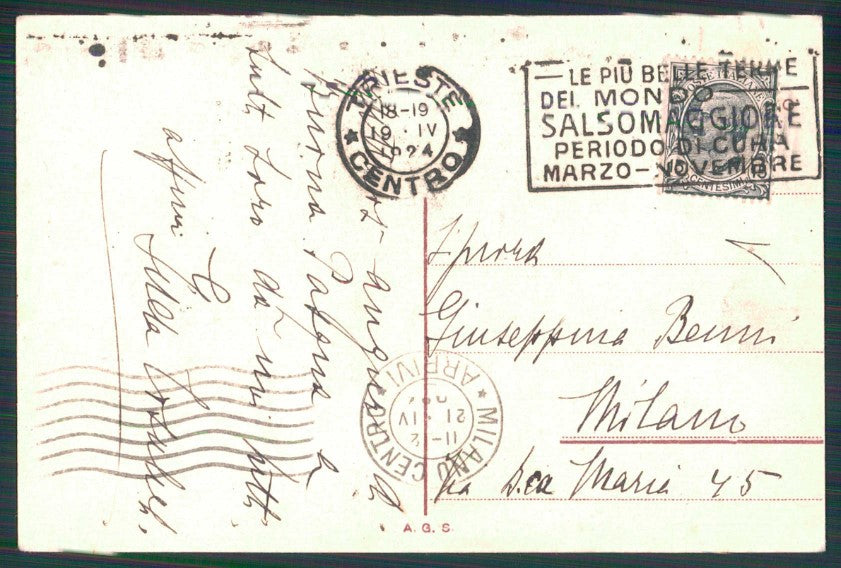 TRIESTE
18-19
19 · IV
1924
★ CENTRO ★
— LE PIÙ BELLE TERME
DEL MONDO —
SALSOMAGGIORE
PERIODO DI CURA
MARZO — NOVEMBRE
POSTE ITALIANE
15 CENTESIMI 15
auguri di
Buona Pasqua a
tutti Loro da noi tutti
Giuseppina Benni
Milano
Via S.ca Maria 45
★ MILANO CENTRO ★ ARRIVI
11-12
21 · IV
A. G. S.